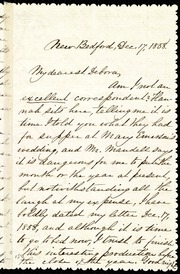 New Bedford, Dec. 17, 1858.
My dearest Debora,
Am I not an
excellent correspondent? Han-
nah sits here, telling me it is
time I told you what they had
for supper at Mary Emerson's
wedding, and Mr. Mandell says
it is dangerous for me to put the
month or the year at present,
but notwithstanding all the
laugh at my expense, I have
boldly dated my letter Dec. 17,
1858, and although it is time
to go to bed now, I trust to finish
this interesting production before
the close of the year.